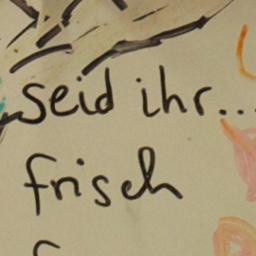 seid ihr...
frisch